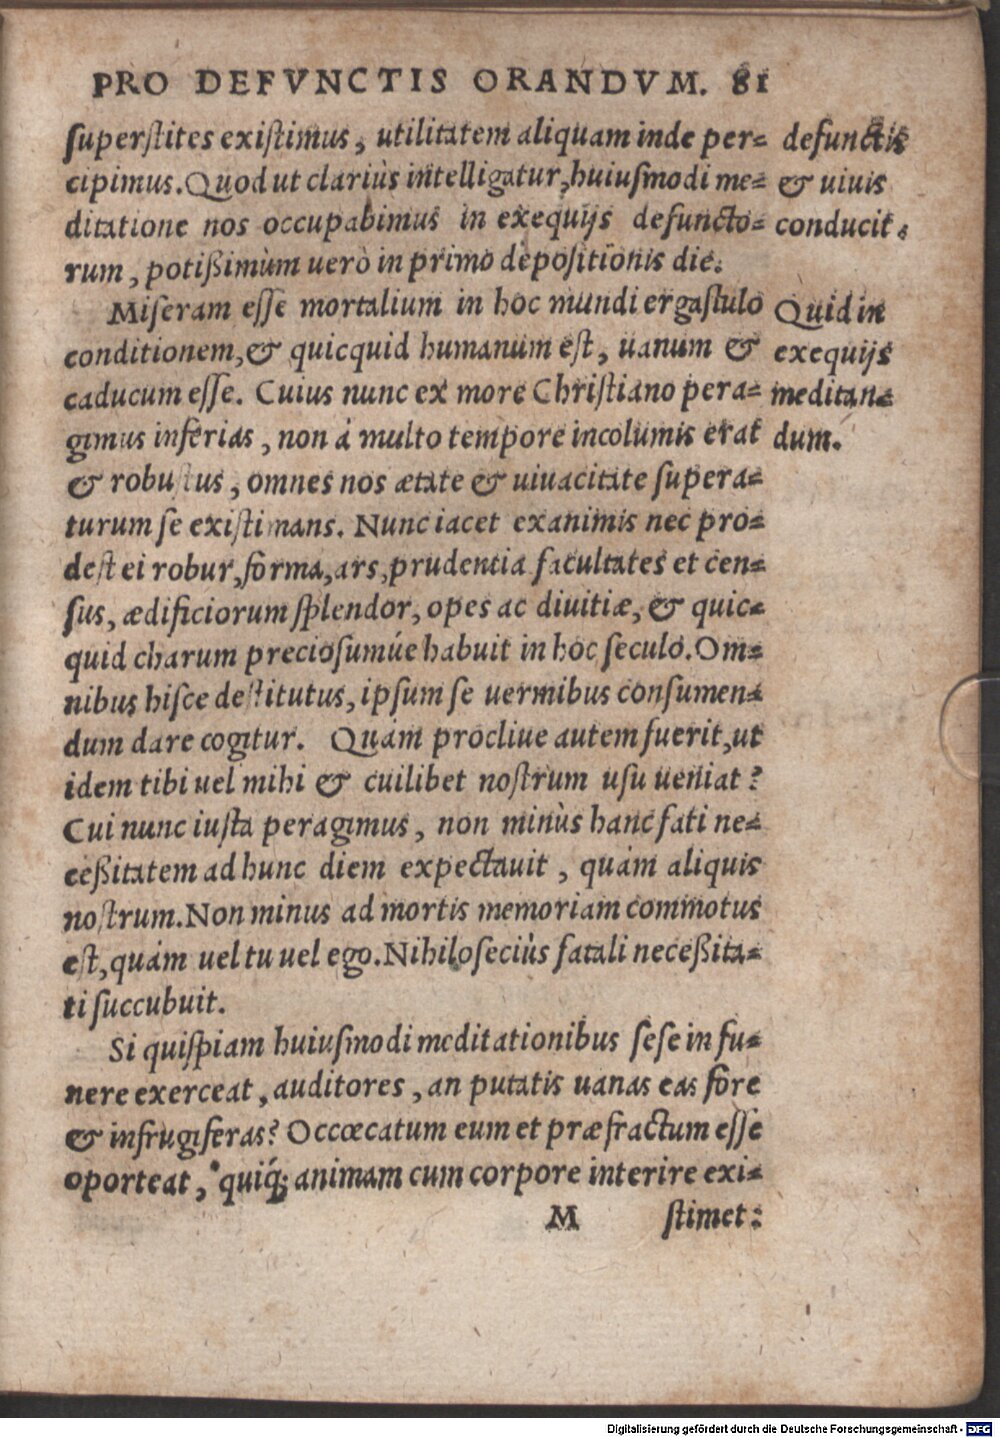 PRO DEFVNCTIS ORANDVM. 81
ſuperſtites exiſtimus, utilitatem aliquam inde per-
cipimus. Quod ut clariùs intelligatur, huiuſmodi me-
ditatione nos occupabimus in exequijs defuncto-
rum, potißimùm uerò in primo depoſitionis die.
defunctis
& uiuis
conducit.
Miſeram eſſe mortalium in hoc mundi ergaſtulo
conditionem, & quicquid humanum eſt, uanum &
caducum eſſe. Cuius nunc ex more Chriſtiano pera-
gimus inferias, non á multo tempore incolumis erat
& robuſtus, omnes nos ætate & uiuacitate ſupera-
turum ſe exiſtimans. Nunc iacet exanimis nec pro-
deſt ei robur, forma, ars, prudentia facultates et cen-
ſus, ædificiorum ſplendor, opes ac diuitiæ, & quic-
quid charum precioſumúe habuit in hoc ſeculo. Om-
nibus hiſce deſtitutus, ipſum ſe uermibus conſumen-
dum dare cogitur. Quám procliue autem fuerit, ut
idem tibi uel mihi & cuilibet noſtrum uſu ueniat?
Cui nunc iuſta peragimus, non minùs hanc fati ne-
ceßitatem ad hunc diem expectauit, quám aliquis
noſtrum. Non minus ad mortis memoriam commotus
eſt, quám uel tu uel ego. Nihiloſeciùs fatali neceßita-
ti ſuccubuit.
Quid in
exequijs
meditan-
dum.
Si quiſpiam huiuſmodi meditationibus ſeſe in fu-
nere exerceat, auditores, an putatis uanas eas fore
& infrugiferas? Occœcatum eum et præfractum eſſe
oporteat, quiq́; animam cum corpore interire exi-
M ſtimet:
Digitalisierung gefördert durch die Deutsche Forschungsgemeinschaft - DFG